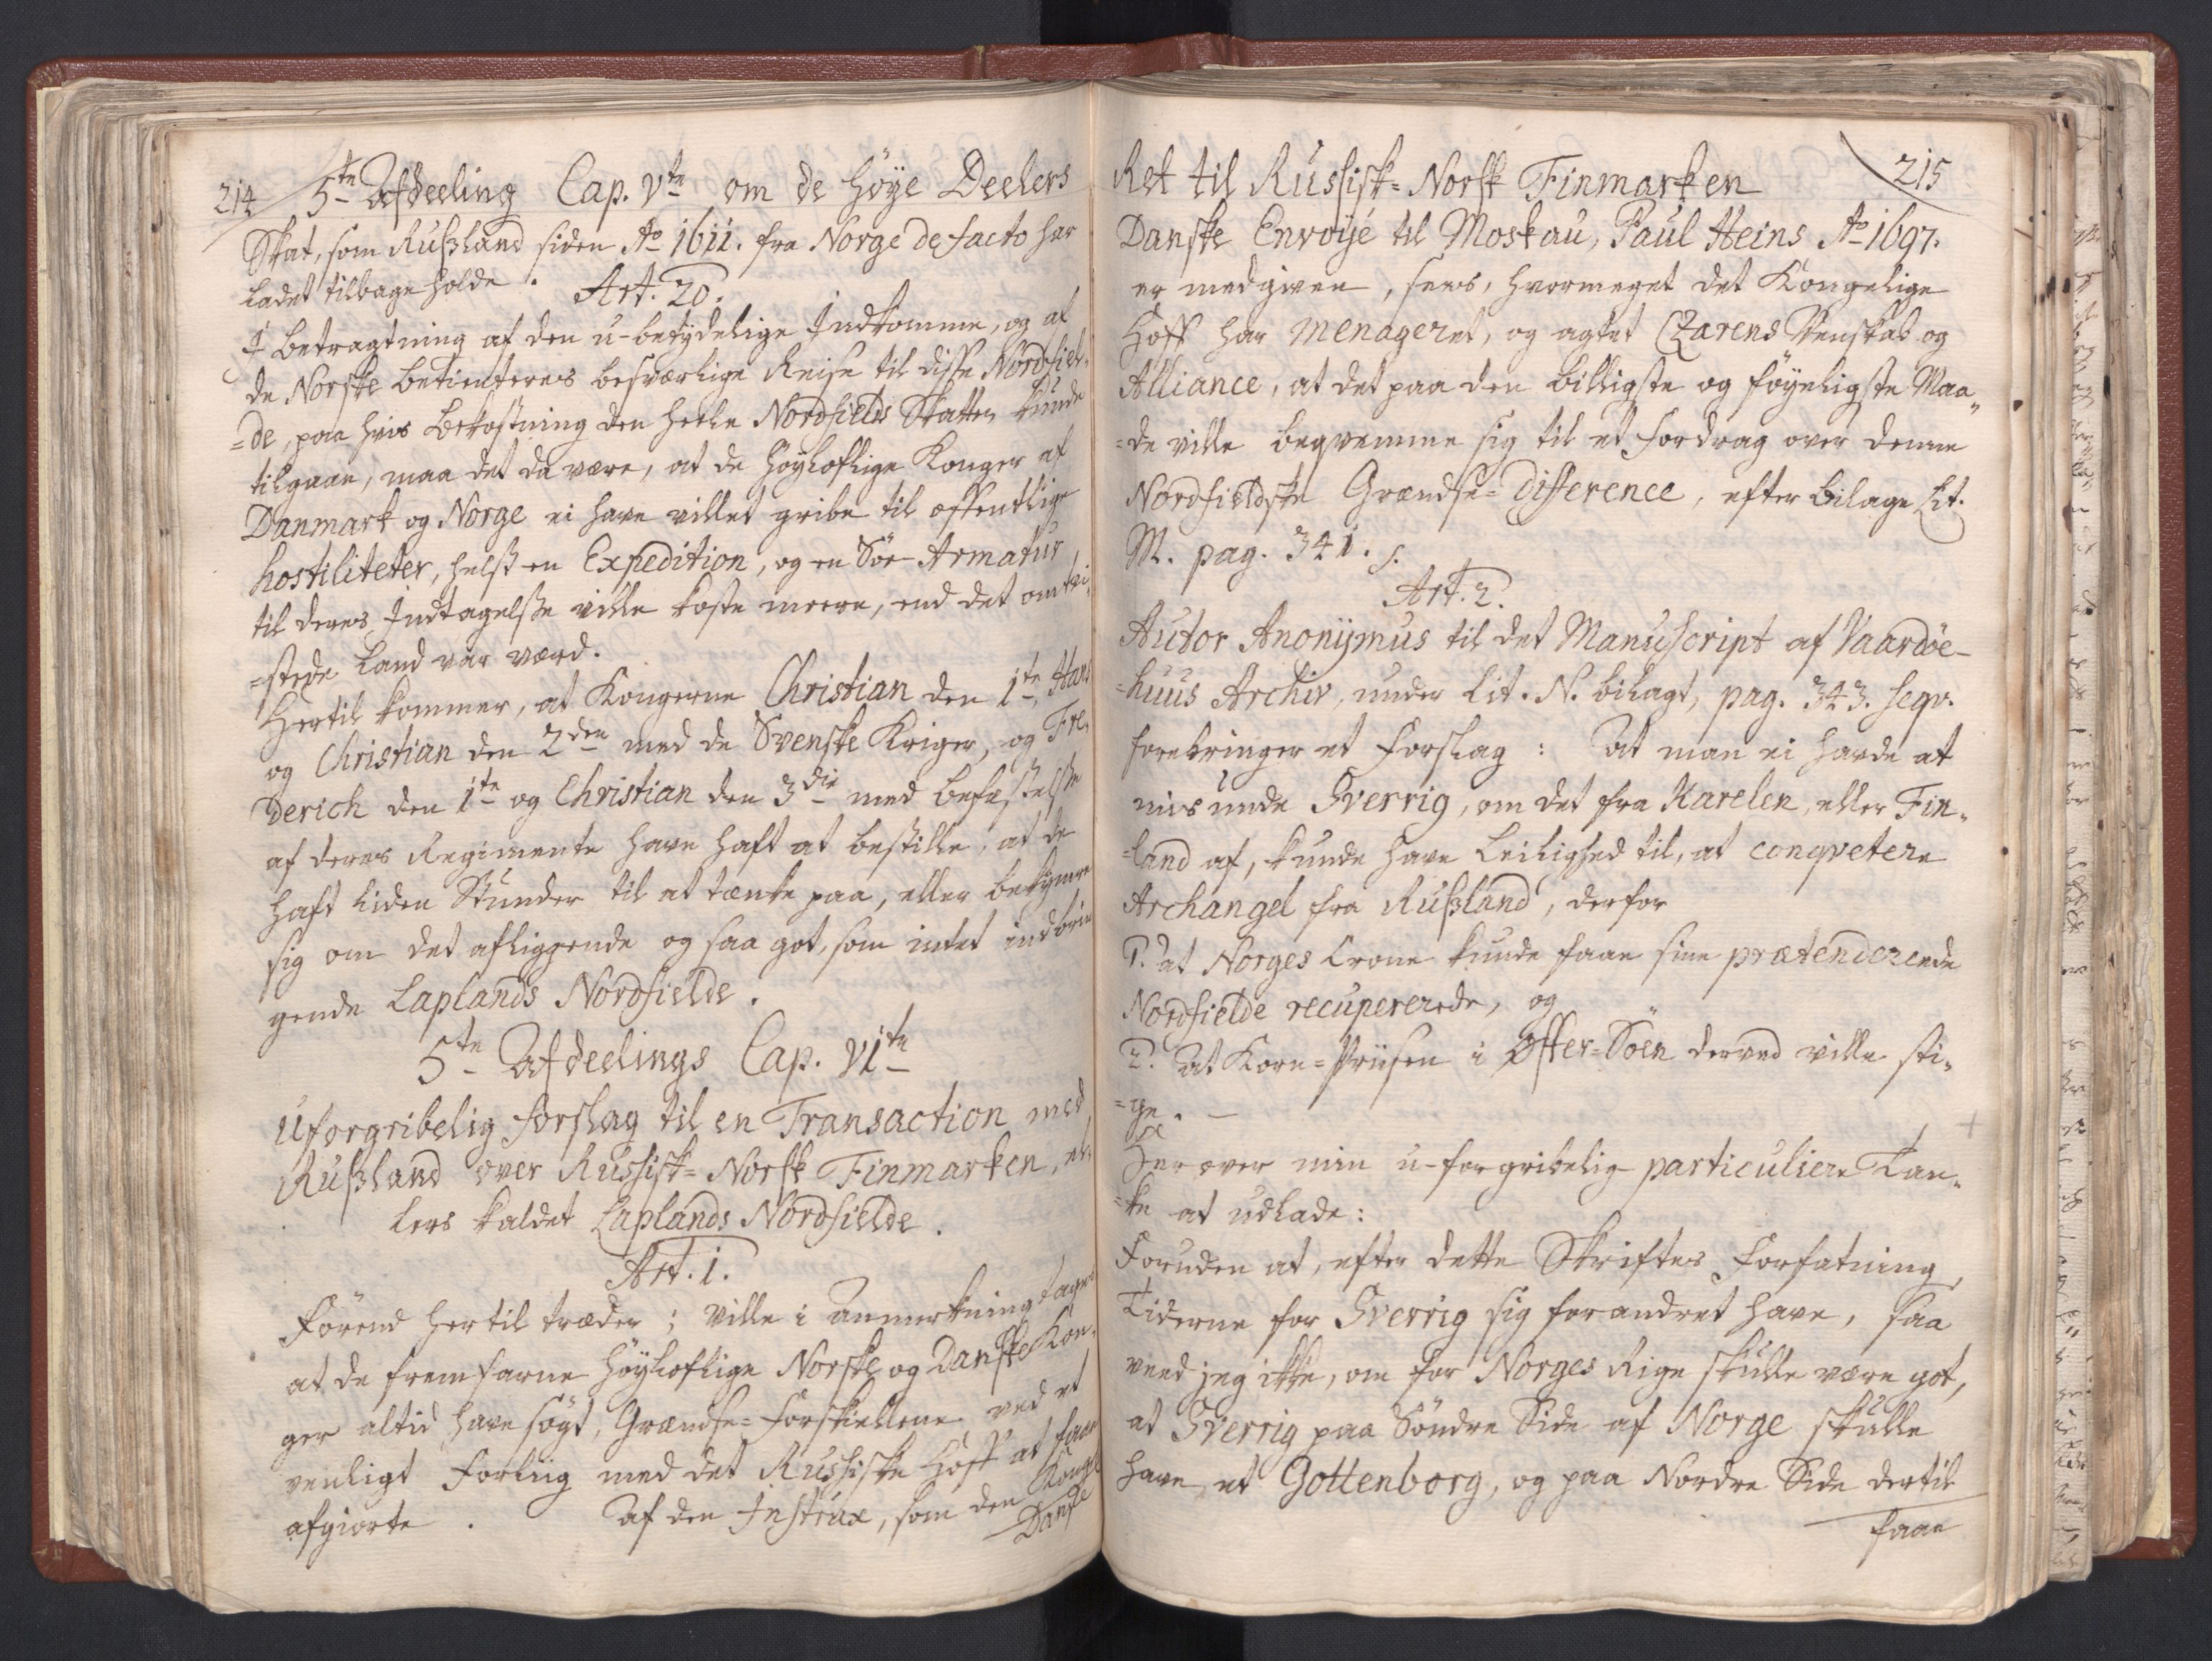 214 5te Afdeeling Cap. Vte om de Höye Deelers
Skat, som Rußland siden Ao 1611. fra Norge de facto har
ladet tilbage holde.
Art. 20.
I betragtning af den u-betydelige Indkomme, og af
de Norske betienteres besværlige Reise til disse Nordfiel-
=de, paa hvis bekostning den heele Nordfields Skatter kunde
tilgaae, maa det da være, at de höyloflige Konger af
Danmark og Norge ei have villet gribe til offentlige
hostiliteter, helst en Expedition, og en Söe-Armatur
til deres Indtagelße ville koste meere, end det omtvi-
=stede Land var værd.
Hertil kommer, at Kongerne Christian den 1te, Hans
og Christian den 2den med de Svenske Kriger, og Fre-
derich den 1te og Christian den 3die med befæstelße
af deres Regimente have haft at bestille, at de
haft liden Stunder til at tænke paa, eller bekymre
sig om det afliggende og saa got, som intet indbrin
gende Laplands Nordfielde.
5te Afdeelings Cap. VIte
Uforgribelig forslag til en Transaction med
Rußland over Russisk=Norsk Finmarken, el-
lers kaldet Laplands Nordfielde.
Art. 1.
Förend hertil træder; ville i Anmerkning tages
at de fremfarne höyloflige Norske og Danske Kon-
ger altid have søgt, Grændse=Forskiellene ved et
venligt Forliig med det Russiske Hoff at faae
afgiorte. Af den Instrux, som den Kongl.
Danske
Ret til Russisk=Norsk Finmarken 215
Danske Envoyé til Moskau, Paul Heins Ao 1697.
er medgiven, sees, hvormeget det Kongelige
Hoff har menageret, og agtet CZarens Venskab og
Alliance, at det paa den billigste og föyeligste Maa-
=de ville beqvemme sig til et fordrag over denne
Nordfieldske Grændse=Difference, efter bilage Lit.
M. pag. 341. s.
Art. 2.
Autor Anonymus til det Manuscript af Vaardöe-
=huus Archiv, under Lit. N. bilagt, pag. 343. seqv.
forebringer et Forslag: At man ei havde at
mis unde Sverrig, om det fra Karelen, eller Fin-
=land af, kunde have Leilighed til, at conqvetere
Archangel fra Rußland, derfor
1. at Norges Crone kunde faae sine prætenderede
Nordfielde recupererede, og
2. at Korn=Priisen i Öster=Söen derved ville sti-
=ge. —
Her over min u-forgribelig particuliere Tan-
=ke at udlade:
Foruden at, efter dette Skriftes Forfatning,
Tiderne for Sverrig sig forandret have, saa
veed jeg ikke, om for Norges Rige skulle være got,
at Sverrig paa Söndre Side af Norge skulle
have et Gottenborg, og paa Nordre Side dertil
faae